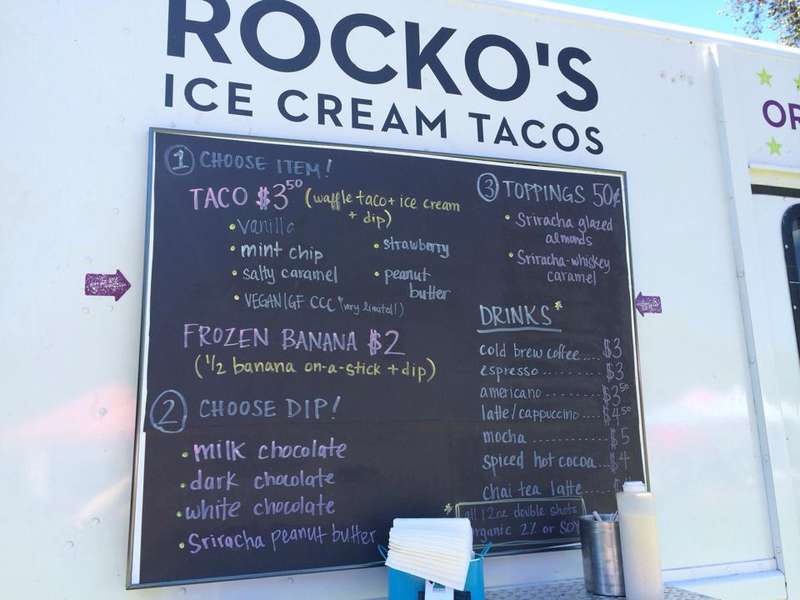 ROCKO'S
ICE CREAM TACOS
OR
1 CHOOSE ITEM!
TACO $3.50 (waffle taco + ice cream
+ dip)
• vanilla
• mint chip
• salty caramel
• VEGAN/GF CCC *(very limited!)
• strawberry
• peanut
butter
FROZEN BANANA $2
(1/2 banana on-a-stick + dip)
2 CHOOSE DIP!
• milk chocolate
• dark chocolate
• white chocolate
• Sriracha peanut butter
3 TOPPINGS 50¢
• Sriracha glazed
almonds
• Sriracha-whiskey
caramel
DRINKS*
cold brew coffee.... $3
espresso............ $3
americano.......... $3.50
latte/cappuccino... $4.50
mocha.............. $5
spiced hot cocoa... $4
chai tea latte.....
* all 12oz double shots
organic 2% or SOY